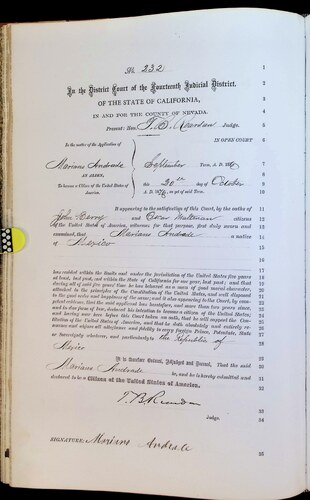 No. 232
In the District Court of the Fourteenth Judicial District.
OF THE STATE OF CALIFORNIA,
IN AND FOR THE COUNTY OF NEVADA.
Present: Hon. T. B. Reardan Judge.
IN OPEN COURT
In the matter of the Application of
Mariano Andrade
AN ALIEN,
To become a Citizen of the United States of America.
September Term, A. D. 1876
this 20th day of October
A. D. 1876, as yet of said Term.
It appearing to the satisfaction of this Court, by the oaths of
John and citizens
of the United States of America, witnesses for that purpose, first duly sworn and
examined, that Mariano Andrade a native
of Mexico
has resided within the limits and under the jurisdiction of the United States five years
at least, last past, and within the State of California for one year, last past; and that
during all of said five years' time he has behaved as a man of good moral character,
attached to the principles of the Constitution of the United States, and well disposed
to the good order and happiness of the same; and it also appearing to the Court, by
competent evidence, that the said applicant has heretofore, and more than two years since,
and in due form of law, declared his intention to become a citizen of the United States,
and having now here before this Court taken an oath, that he will support the
Constitution of the United States of America, and that he doth absolutely and entirely
renounce and abjure all allegiance and fidelity to every foreign Prince, Potentate, State
or Sovereignty whatever, and particularly to the Republic of
Mexico
It is therefore Ordered, Adjudged and Decreed, That the said
Mariano Andrade is, and he is hereby admitted and
declared to be a Citizen of the United States of America.
T. B. Reardan
Judge.
SIGNATURE: Mariano Andrade